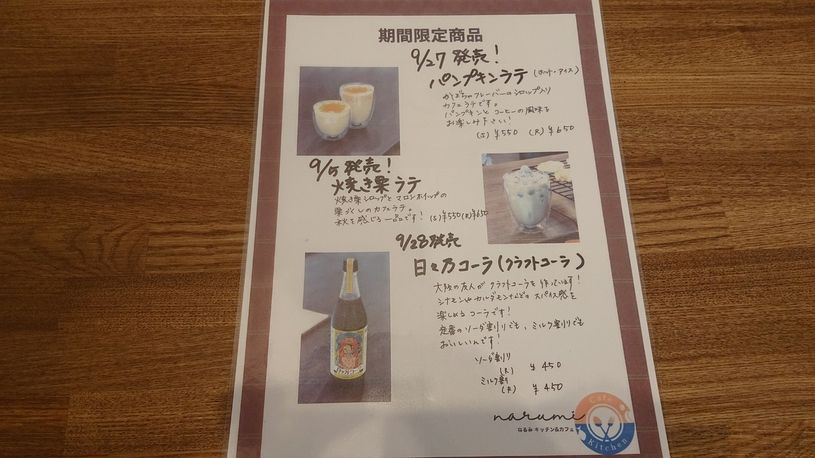 期間限定商品
9/27 発売！
パンプキンラテ (ホット・アイス)
かぼちゃフレーバーのシロップ入り
カフェラテです。
パンプキンとコーヒーの風味を
お楽しみ下さい！
(S) ¥550 (R) ¥650
9/5 発売！
焼き栗ラテ
焼き栗シロップとマロンホイップの
栗づくしのカフェラテ。
秋を感じる一品です！ (S)¥550 (R)¥650
9/28 発売
日々乃コーラ (クラフトコーラ)
大阪の友人がクラフトコーラを作っています！
シナモンやカルダモンなどのスパイス感を
楽しめるコーラです！
定番のソーダ割りでも、ミルク割りでも
おいしいんです！
ソーダ割り
(R) ¥450
ミルク割り
(R) ¥450
narumi
なるみ キッチン&カフェ
Cafe
Kitchen